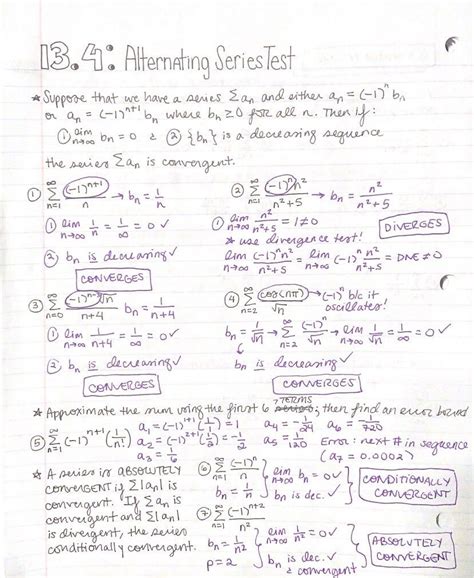 13.4: Alternating Series Test
* Suppose that we have a series Σan and either an = (-1)^n bn
or an = (-1)^(n+1) bn where bn ≥ 0 for all n. Then if:
① lim n→∞ bn = 0 & ② {bn} is a decreasing sequence
the series Σan is convergent.
① ∞ Σ n=1 (-1)^(n+1)/n → bn = 1/n
① lim n→∞ 1/n = 1/∞ = 0 ✓
② bn is decreasing ✓
CONVERGES
② ∞ Σ n=1 (-1)^n n²/(n²+5) → bn = n²/(n²+5)
① lim n→∞ n²/(n²+5) = 1 ≠ 0
DIVERGES
* use divergence test!
lim n→∞ (-1)^n n²/(n²+5) = lim n→∞ (-1)^n n²/(n²+5) = DNE ≠ 0
③ ∞ Σ n=0 √n/(n+4) bn = 1/(n+4)
① lim n→∞ 1/(n+4) = 1/∞ = 0 ✓
② bn is decreasing ✓
CONVERGES
④ ∞ Σ n=2 cos(nπ)/√n → (-1)^n b/c it
oscillates!
bn = 1/√n → ∞ Σ n=2 (-1)^n/√n → lim n→∞ 1/√n = 1/∞ = 0 ✓
bn is decreasing ✓
CONVERGES
* Approximate the sum using the first 6 terms; then find an error bound
⑤ ∞ Σ n=1 (-1)^(n+1) (1/n!)
a1 = (-1)^(1+1) (1/1) = 1
a2 = (-1)^(2+1) = -1/2
a3 = 1/6
a4 = -1/24
a5 = 1/120
a6 = -1/720
Error: next # in sequence
(a7 = 0.0002)
* A series is ABSOLUTELY
convergent if Σ|an|
is convergent. If Σan is
convergent and Σ|an|
is divergent, the series
conditionally convergent.
⑥ ∞ Σ n=1 (-1)^n/n
bn = 1/n
lim n→∞ bn = 0 ✓
bn is dec. ✓
CONDITIONALLY
CONVERGENT
⑦ ∞ Σ n=1 (-1)^(n+2)/n²
bn = 1/n²
p = 2
lim n→∞ 1/n² = 0 ✓
bn is dec. ✓
convergent
ABSOLUTELY
CONVERGENT